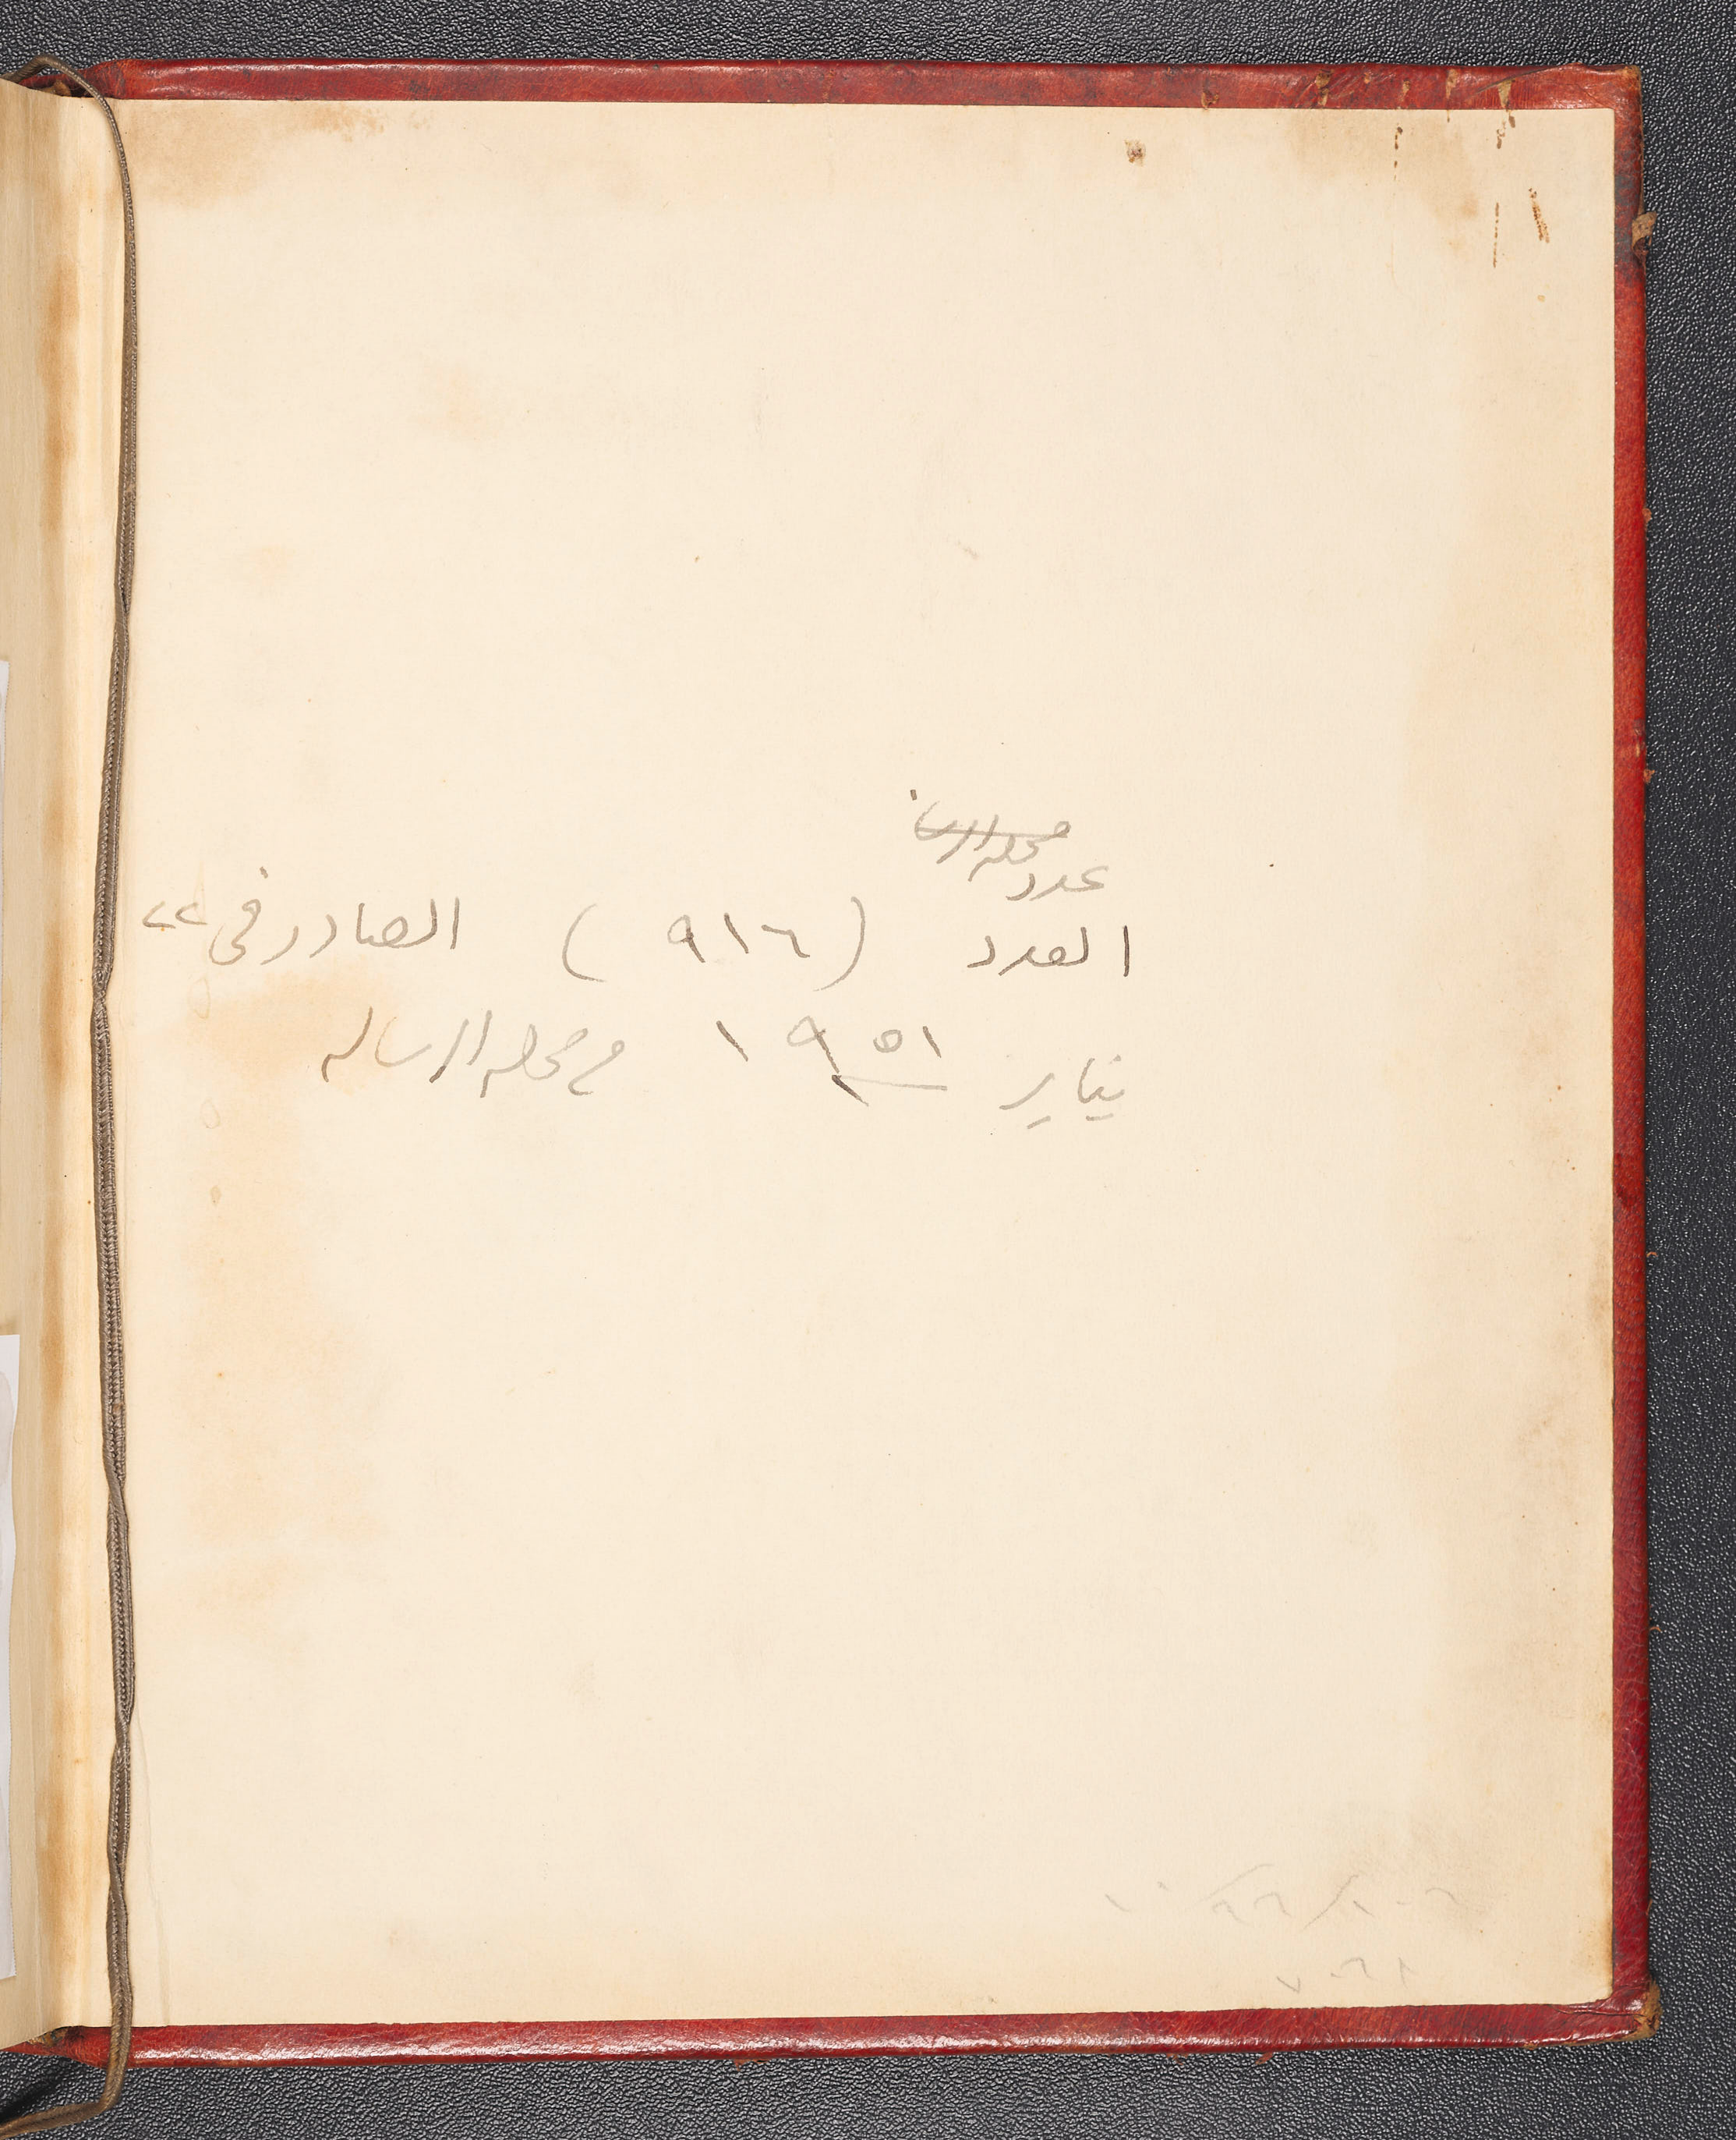 مجله الرسا
عدد
العدد (٩١٦) الصادر في ٢٢
يناير ١٩٥١ من مجله الرساله